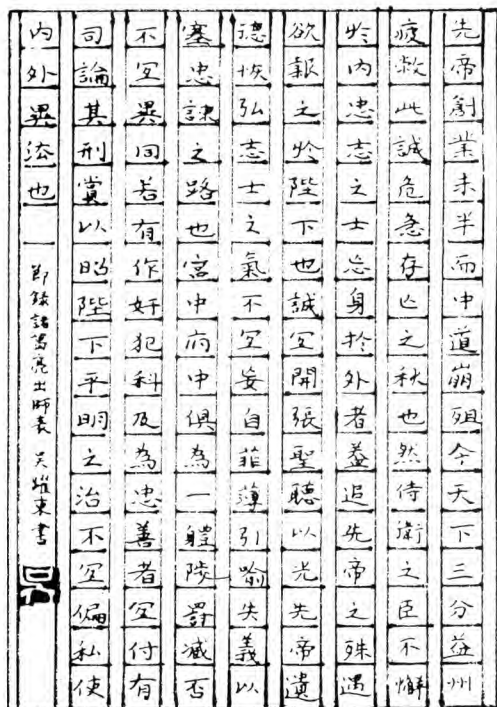 先帝創業未半而中道崩殂今天下三分益州
疲敝此誠危急存亡之秋也然侍衛之臣不懈
於内忠志之士忘身於外者蓋追先帝之殊遇
欲報之於陛下也誠宜開張聖聽以光先帝遺
德恢弘志士之氣不宜妄自菲薄引喻失義以
塞忠諫之路也宮中府中俱為一體陟罰臧否
不宜異同若有作奸犯科及為忠善者宜付有
司論其刑賞以昭陛下平明之治不宜偏私使
内外異法也
節錄諸葛亮出師表 吴耀東書